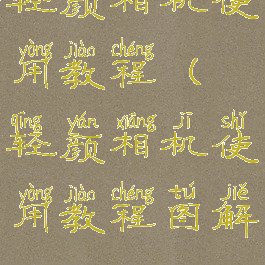 轻颜相机使
yòng jiào chéng
用教程（
qīng yán xiāng jī shǐ
轻颜相机使
yòng jiào chéng tú jiě
用教程图解